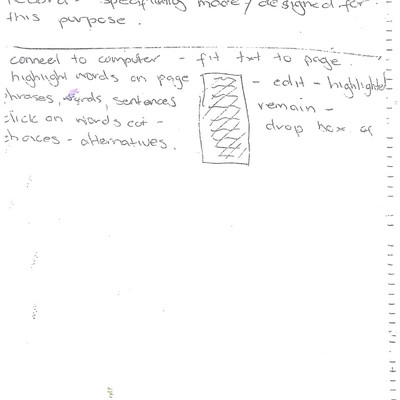 record - specifically made / designed for
this purpose.
connect to computer - fit txt to page.
highlight words on page
phrases, words, sentences
click on words cut -
choices - alternatives.
- edit - highlighted
remain -
drop box of